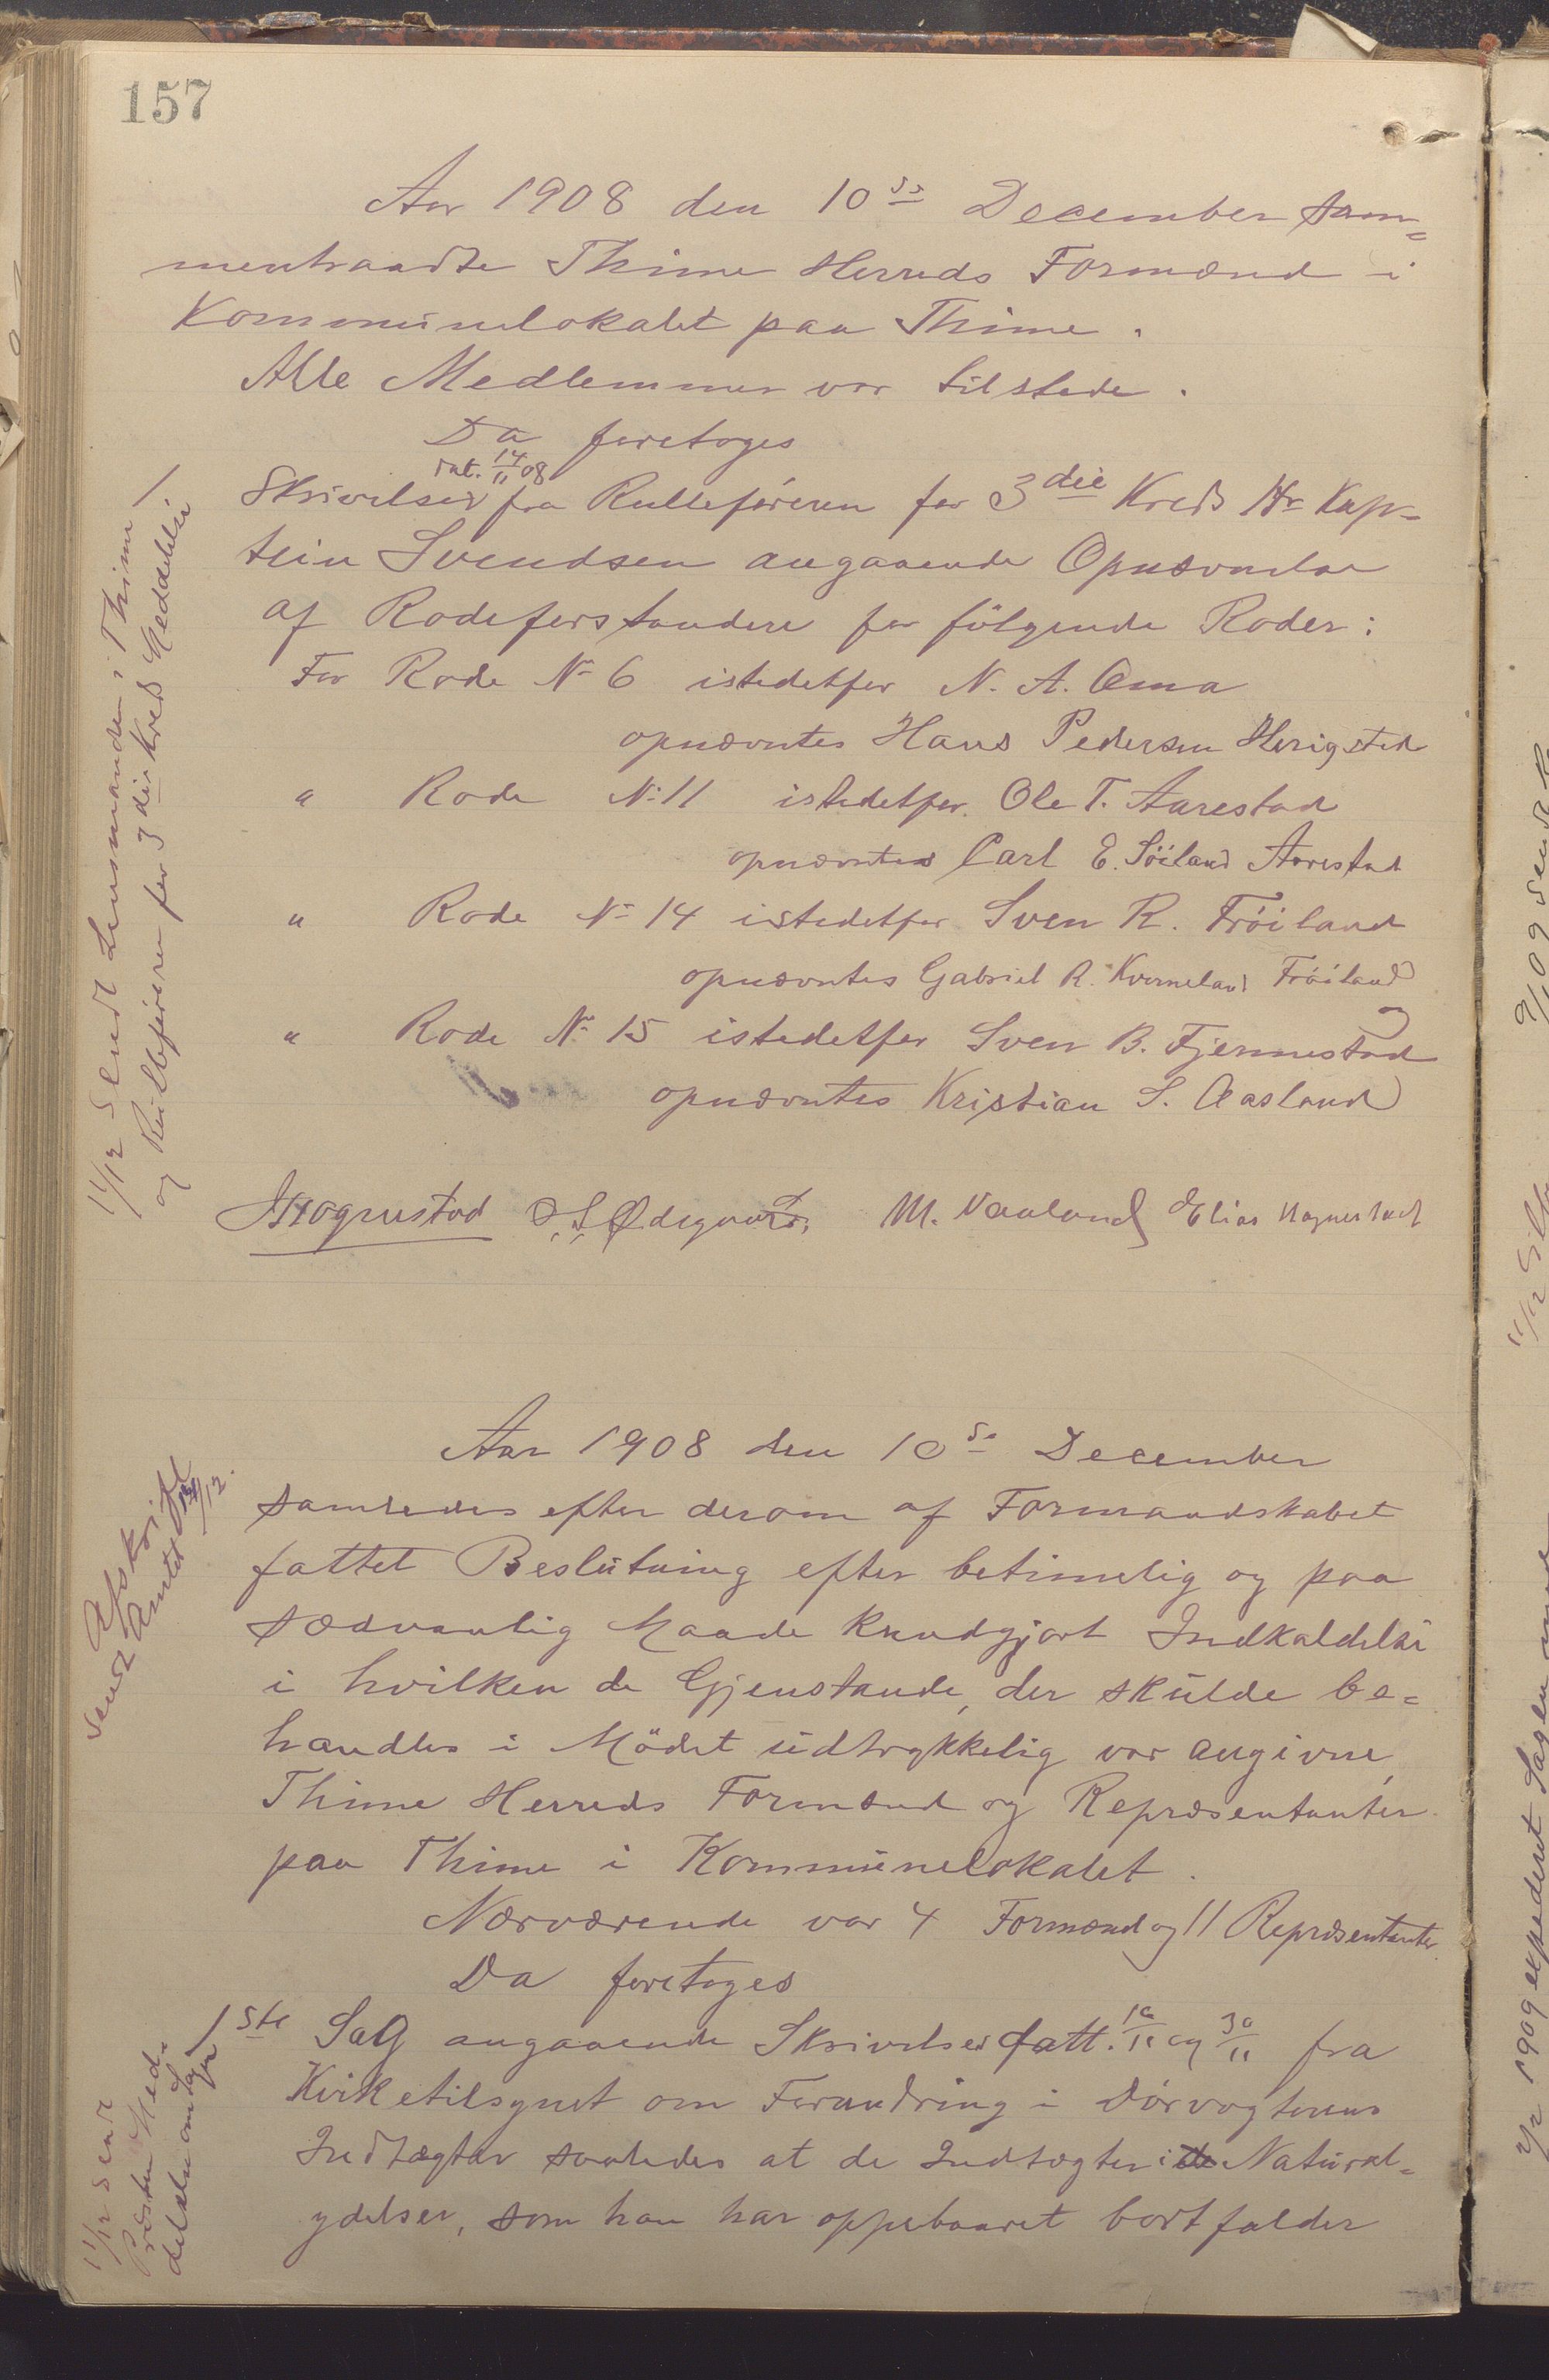 157
Aar 1908 den 10de December sam=
mentraadte Thime Herreds Formænd i
Kommunelokalet paa Thime.
Alle Medlemmer var tilstede.
Da foretoges
dat. 14/11 08
Skrivelser fra Rulleføreren for 3die Kreds Hr Kap-
tein Svendsen angaaende Opnævnelse
af Rodeforstandere for følgende Roder:
For Rode No 6 istedetfor N. A. Oma
opnævntes Hans Pedersen Herigstad
" Rode No 11 istedetfor Ole T. Aarestad
opnævntes Carl E. Söiland Aarestad
" Rode No 14 istedetfor Sven R. Fröiland
opnævntes Gabriel R. Kverneland Fröiland
" Rode No 15 istedetfor Sven B. Fjermestad
opnævntes Kristian S. Aasland
11/12 Sendt Lensmanden i Thime
og Rulleföreren for 3die Kreds Meddelelse
Hognestad O. S. Ødegaard. M. Vaaland Elias Hognestad
Aar 1908 den 10de December
samledes efter derom af Formandskabet
fattet Beslutning efter betimelig og paa
sædvanlig Maade kundgjort Indkaldelse
i hvilken de Gjenstande, der skulde be=
handles i Mödet udtrykkelig var angivne,
Thime Herreds Formænd og Repræsentanter
paa Thime i Kommunelokalet.
Nærværende var 4 Formænd og 11 Repræsentanter.
Da foretoges
Afskrift
sendt Amtet /12.
1ste Sag angaaende Skrivelser datt. 10/11 og 30/11 fra
Kirketilsynet om Forandring i Dörvogterens
Indtægter saaledes at de Indtægter i Natural=
ydelser, som han har oppebaaret bortfalder
11/12 sendt
Presten Med=
delelse om Sagen